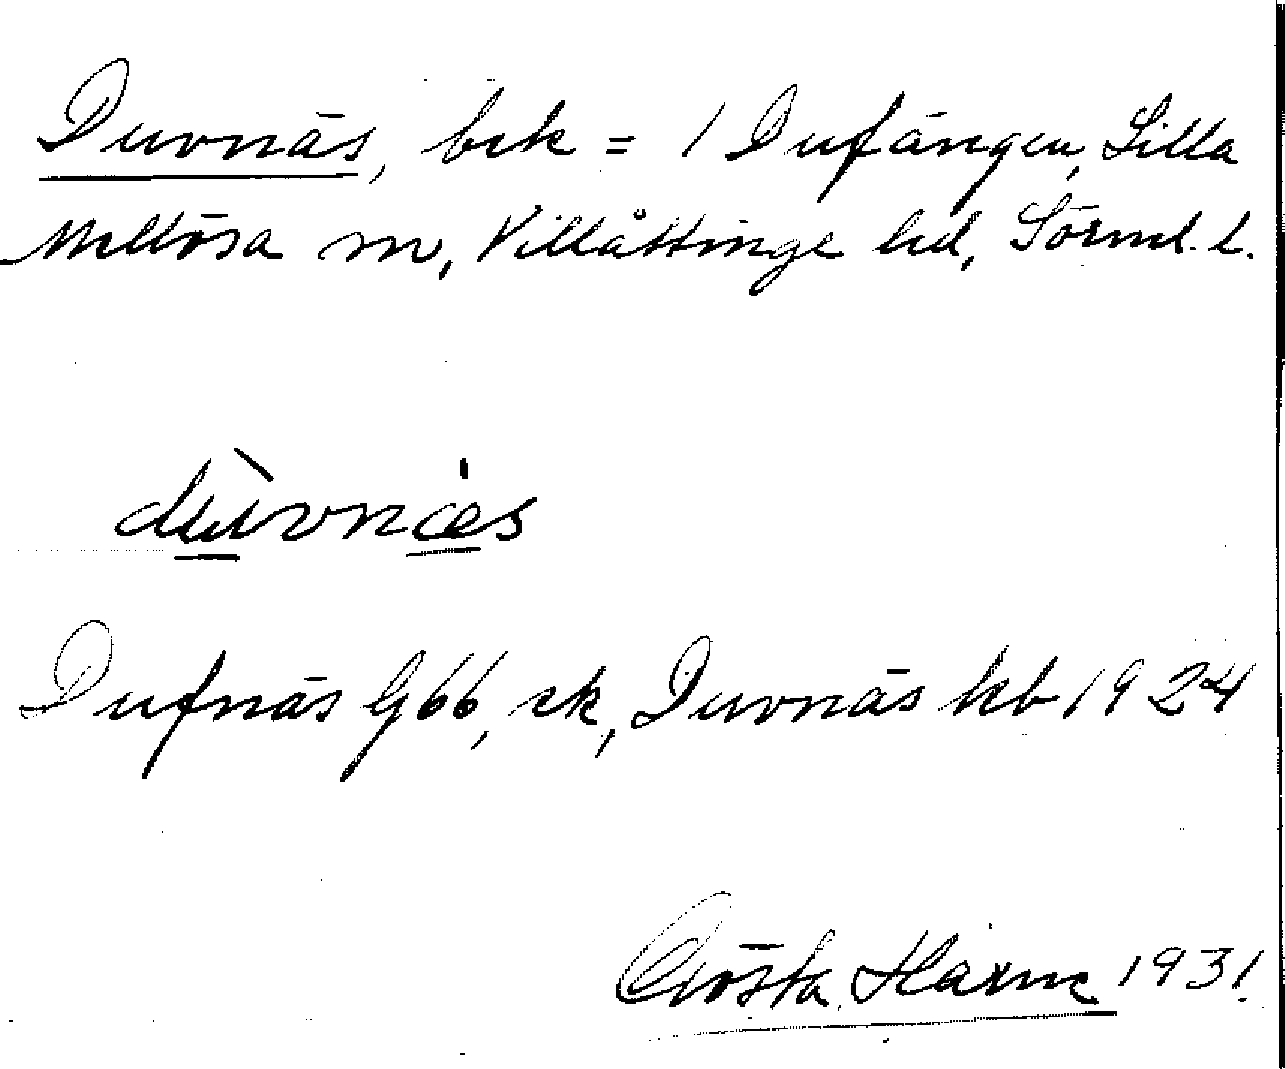 Duvnäs, bck = 1 Dufängen, Lilla
Mellösa sn, Villåttinge hd, Sörml. l.
dùvnæs
Dufnäs G66, ek, Duvnäs kb 1924
Gösta Härne 1931.